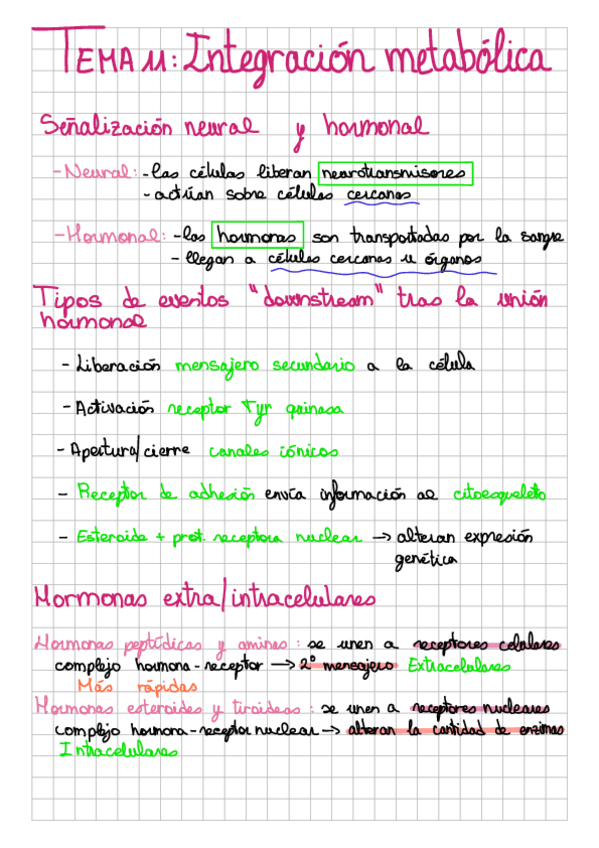 TEMA 11: Integración metabólica
Señalización neural y hormonal
- Neural: - las células liberan neurotransmisores
- actúan sobre células cercanas
- Hormonal: - las hormonas son transportadas por la sangre
- llegan a células cercanas u órganos
Tipos de eventos "downstream" tras la unión
hormonal
- Liberación mensajero secundario a la célula
- Activación receptor Tyr quinasa
- Apertura/cierre canales iónicos
- Receptor de adhesión envía información al citoesqueleto
- Esteroide + prot. receptora nuclear → alteran expresión
genética
Hormonas extra/intracelulares
Hormonas peptídicas y aminas: se unen a receptores celulares
complejo hormona-receptor → 2º mensajero Extracelulares
Más rápidas
Hormonas esteroides y tiroideas: se unen a receptores nucleares
complejo hormona-receptor nuclear → alteran la cantidad de enzimas
Intracelulares